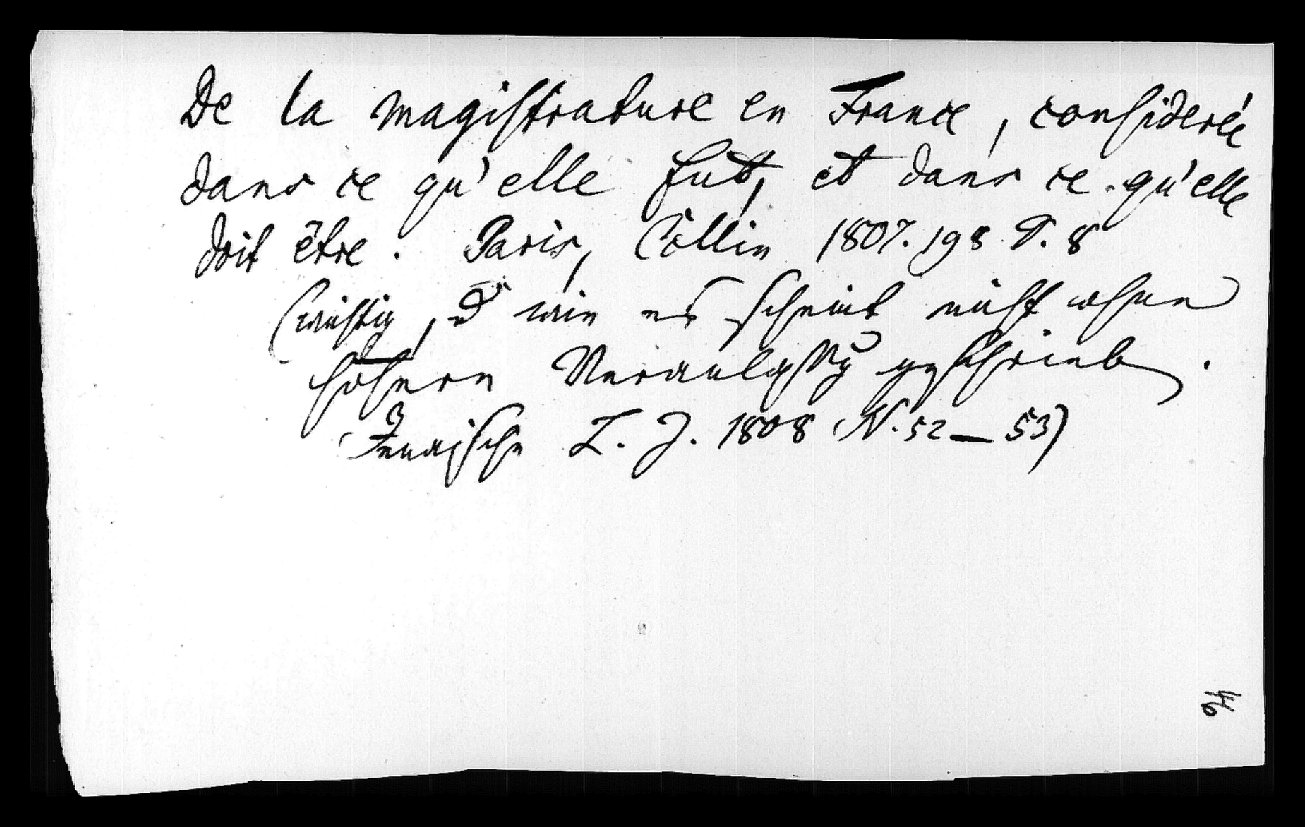 De la magistrature en France, considerée
dans ce qu'elle fut, et dans ce qu'elle
doit être. Paris, Collin 1807. 198 S. 8
(wichtig, u wie es scheint nicht ohne
höhere Veranlassg geschrieb.
Jenaische L. Z. 1808 N. 52 — 53)